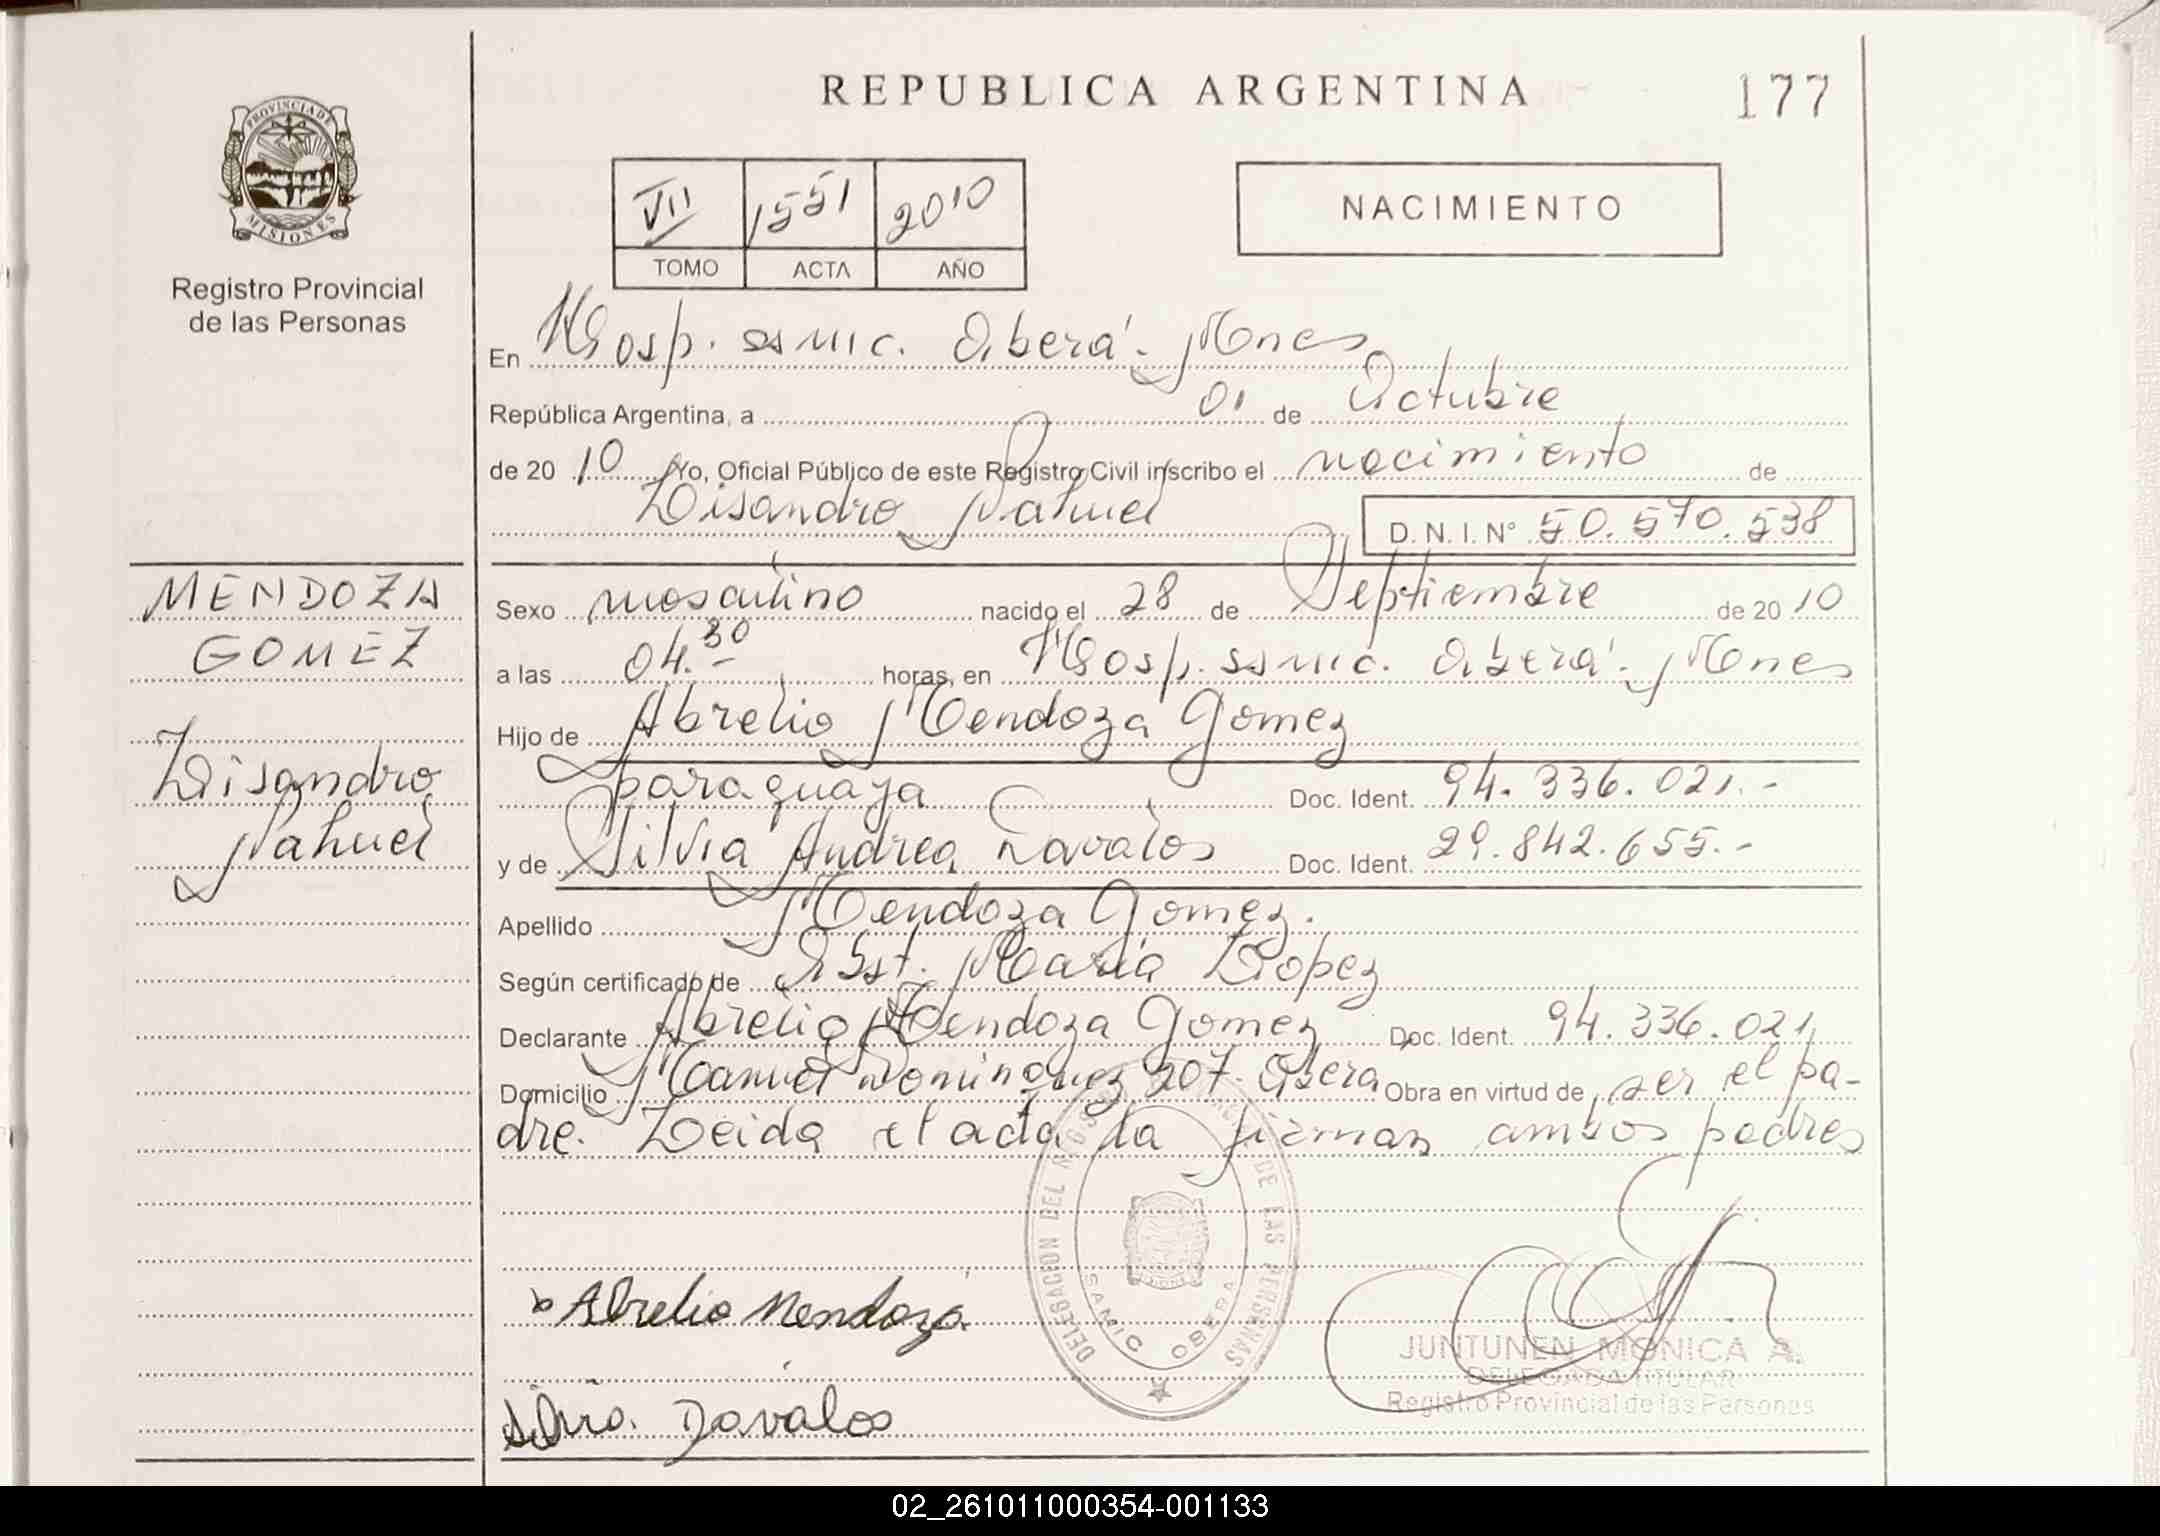 REPUBLICA ARGENTINA
177
PROVINCIA DE
MISIONES
Registro Provincial
de las Personas
VII 1551 2010
TOMO ACTA AÑO
NACIMIENTO
En Hosp. ssmic. Oberá - Mnes
República Argentina, a 01 de Octubre
de 20 10 Yo, Oficial Público de este Registro Civil inscribo el nacimiento de
Lisandro Nahuel D. N. I. N° 50.570.538
MENDOZA
GOMEZ
Lisandro
Nahuel
Sexo masculino nacido el 28 de Septiembre de 20 10
a las 04.30 horas, en Hosp. ssmic. Oberá - Mnes
Hijo de Abrelio Mendoza Gomez
paraguaya Doc. Ident. 94.336.021.-
y de Silvia Andrea Davalos Doc. Ident. 29.842.655.-
Apellido Mendoza Gomez.
Según certificado de Obst. Maria Lopez
Declarante Abrelio Mendoza Gomez Doc. Ident. 94.336.021
Domicilio Manuel Dominguez 207. Obera Obra en virtud de ser el pa-
dre. Leida el acta la firman ambos padres
DELEGACION DEL REGISTRO DE LAS PERSONAS
SAMIC OBERA
Abrelio Mendoza
Silvia. Davalos
JUNTUNEN MONICA A.
DELEGADA TITULAR
Registro Provincial de las Personas
02_261011000354-001133